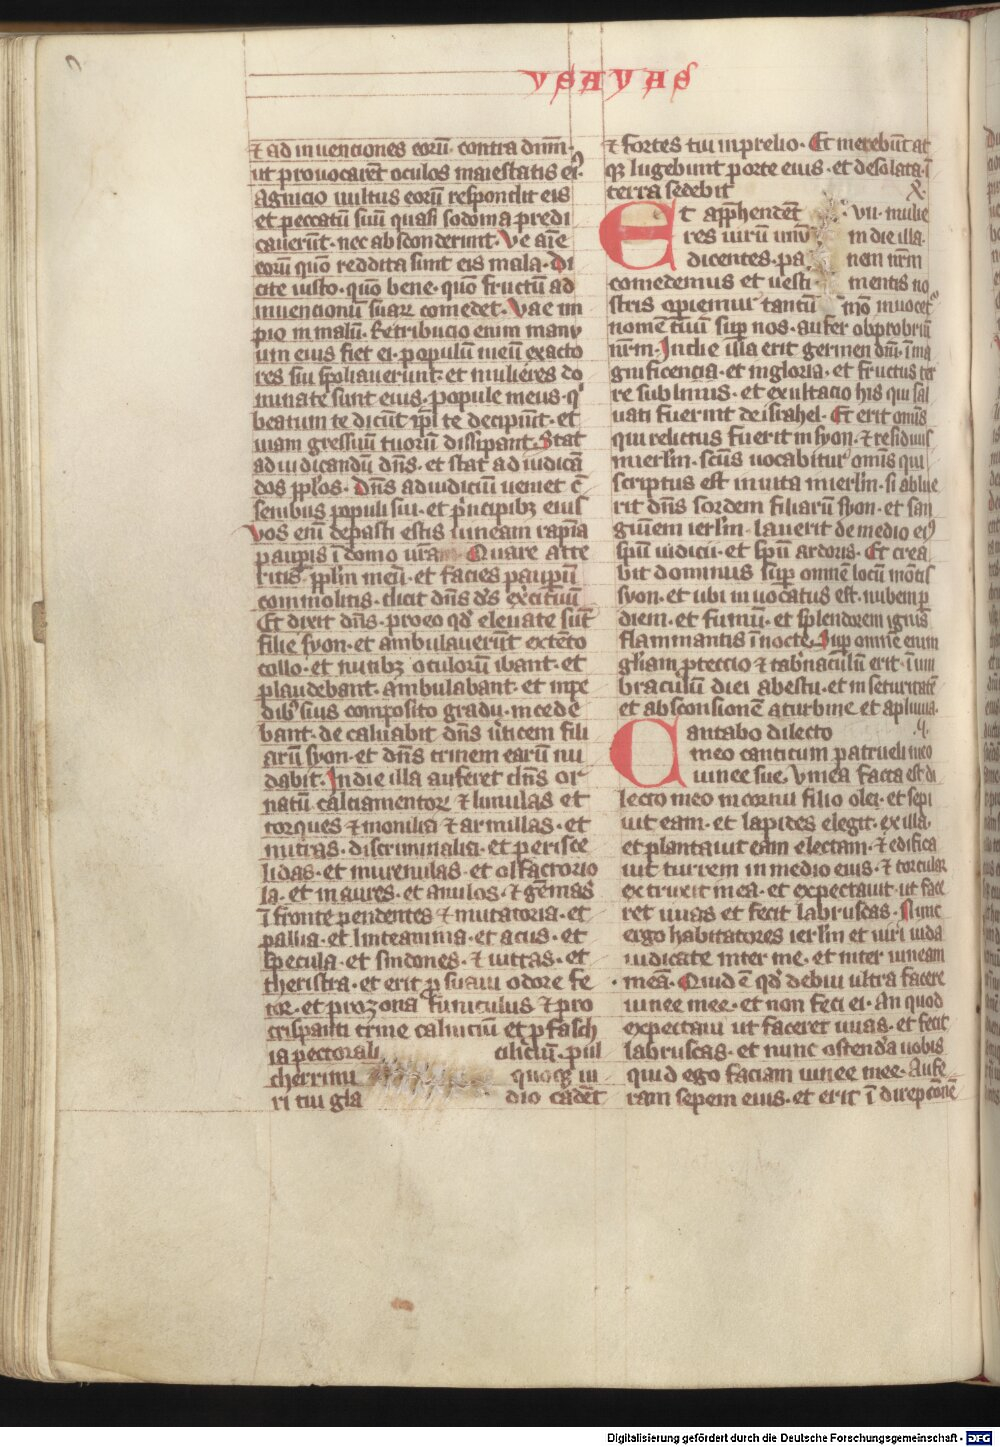 YSAYAS
⁊ ad inuenciones eorū· contra dnm̄·
ut prouocarēt oculos maiestatis ei᷒·
agnicio uultus eorū respondit eis
et peccatū suū quasi sodoma predi
cauerūt· nec absconderunt· Ve aīe
eorū quō reddita sunt eis mala· Di
cite iusto· quō bene· quō fructū ad
inuencionū suarꝝ comedet· Vae im
pio in malū· Retribucio enim manu
um eius fiet ei· populū meū exacto
res sui spoliauerunt· et mulieres do
minate sunt eius· popule meus· q'
beatum te dicūt ip̄i te decipiūt· et
uiam gressuum tuorū dissipant· Stat
ad iudicandū dn̄s· et stat ad iudicā
dos ppl̓os· Dn̄s ad iudiciū ueniet c̄
senibus populi sui· et p'ncipibꝫ eius
Vos enī depasti estis uineam rapīa
paupis ī domo ur̄a· Quare atte
ritis ppl̓m meū· et facies pauperū
commolitis· dicit dn̄s d's ex'cituū
Et dixit dn̄s· pro eo qd' eleuate sūt
filie syon· et ambulauerūt extēto
collo· et nutibꝫ oculorū ibant· et
plaudebant· ambulabant· et in pe
dib᷒ suis composito gradu· incede
bant· decaluabit dn̄s u'ticem fili
arū syon· et dn̄s crinem earū nu
dabit· In die illa auferet dn̄s or
natū calciamentorꝝ ⁊ lunulas et
torques ⁊ monilia ⁊ armillas· et
mitras· discriminalia· et perisce
lidas· et murenulas· et olfactorio
la· et inaures· et anulos· ⁊ gēmas
ī fronte pendentes ⁊ mutatoria· et
pallia· et linteamina· et acus· et
specula· et sindones· ⁊ uittas· et
theristra· et erit p suaui odore fe
tor· et pro zona funiculus ⁊ pro
crispanti crine caluiciū et p fasch
ia pectorali ciliciū· pul
cherrimi quoqꝫ ui
ri tui gla dio cadēt
⁊ fortes tui in prelio· Et merebūt at
qꝫ lugebunt porte eius· et desolata ī
terra sedebit
Et app̄hendēt · vii· mulie
res uirū unū in die illa·
dicentes· pa nem nr̄m
comedemus et uesti mentis no
stris operiemur tantū mō inuocet᷒
nomē tuū sup nos· aufer obprobriū
nr̄m· In die illa erit germen dn̄i· ī ma
gnificencia· et in gloria· et fructus ter
re sublimis· et exultacio his qui sal
uati fuerint de israhel· Et erit omīs
qui relictus fuerit in syon· ⁊ residuus
in ierl̄m· scūs uocabitur omīs qui
scriptus est in uita in ierl̄m· si ablue
rit dn̄s sordem filiarū syon· et san
guinem ierl̄m· lauerit de medio ei᷒
sp̄u iudicii· et sp̄u ardoris· Et crea
bit dominus sup omnē locū mōtis
syon· et ubi inuocatus est· nubem p
diem· et fumū· et splendorem ignis
flammantis ī nocte· Sup omnē enim
gl̓iam pteccio ⁊ tab'naculū erit· ī um
braculū diei ab estu· et in securitatē
et absconsionē a turbine et a pluuia·
Cantabo dilecto
meo canticum patrueli meo
uinee sue· Vinea facta est di
lecto meo in cornu filio olei· et sepi
uit eam· et lapides elegit· ex illa·
et plantauit eam electam· ⁊ edifica
uit turrem in medio eius· ⁊ torcular
extruxit in ea· et expectauit ut face
ret uuas et fecit labruscas· Nunc
ergo habitatores ierl̄m et uiri iuda
iudicate inter me· et inter uineam
meā· Quid ē qd' debui ultra facere
uinee mee· et non feci ei· an quod
expectaui ut faceret uuas· et fecit
labruscas· et nunc ostendā uobis
quid ego faciam uinee mee· Aufe
ram sepem eius· et erit ī direpcōnē
Digitalisierung gefördert durch die Deutsche Forschungsgemeinschaft - DFG